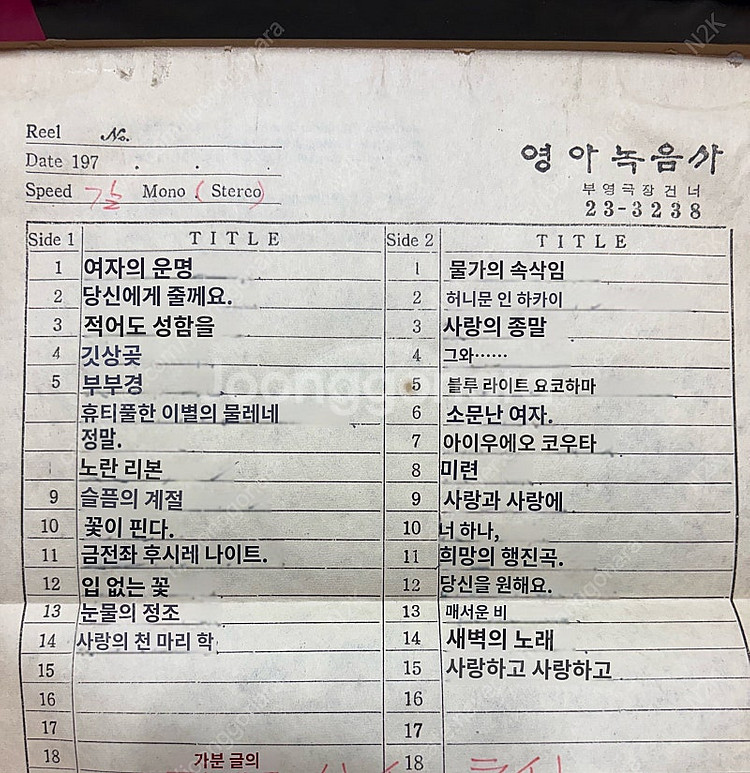 Reel No.
Date 197 . . .
Speed Mono ( Stereo )
영아녹음사
부영극장건너
23-3238
Side 1 TITLE
1 여자의 운명
2 당신에게 줄께요.
3 적어도 성함을
4 깃상곶
5 부부경
휴티풀한 이별의 물레네
정말.
노란 리본
9 슬픔의 계절
10 꽃이 핀다.
11 금전좌 후시레 나이트.
12 입 없는 꽃
13 눈물의 정조
14 사랑의 천 마리 학
15
16
17
18 가분 글의
Side 2 TITLE
1 물가의 속삭임
2 허니문 인 하카이
3 사랑의 종말
4 그와……
5 블루 라이트 요코하마
6 소문난 여자.
7 아이우에오 코우타
8 미련
9 사랑과 사랑에
10 너 하나,
11 희망의 행진곡.
12 당신을 원해요.
13 매서운 비
14 새벽의 노래
15 사랑하고 사랑하고
16
17
18
joonggonara
N2K